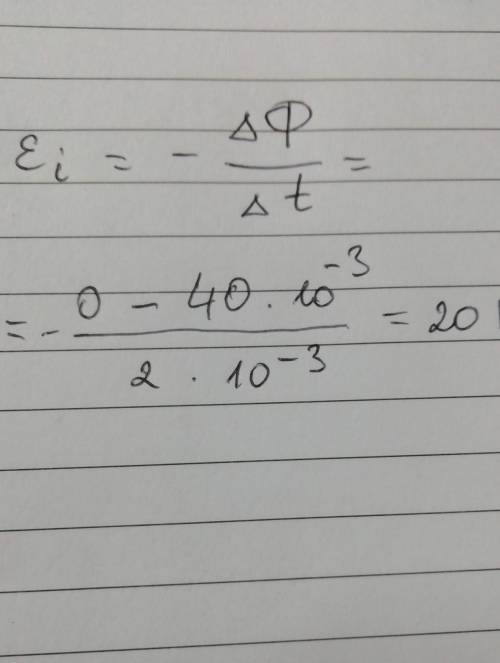 εi = - ΔΦ / Δt =
= - 0 - 40 · 10⁻³ / 2 · 10⁻³ = 20